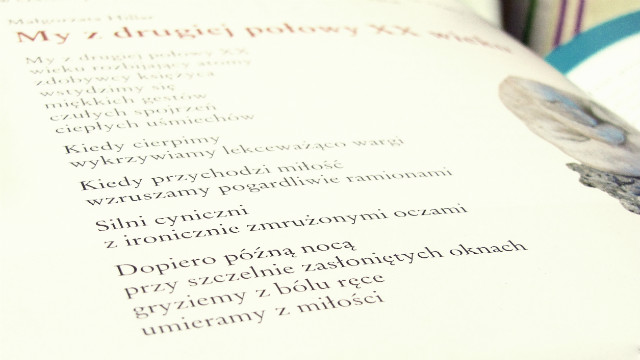 Małgorzata Hillar
My z drugiej połowy XX wieku
My z drugiej połowy XX
wieku rozbijający atomy
zdobywcy księżyca
wstydzimy się
miękkich gestów
czułych spojrzeń
ciepłych uśmiechów
Kiedy cierpimy
wykrzywiamy lekceważąco wargi
Kiedy przychodzi miłość
wzruszamy pogardliwie ramionami
Silni cyniczni
z ironicznie zmrużonymi oczami
Dopiero późną nocą
przy szczelnie zasłoniętych oknach
gryziemy z bólu ręce
umieramy z miłości